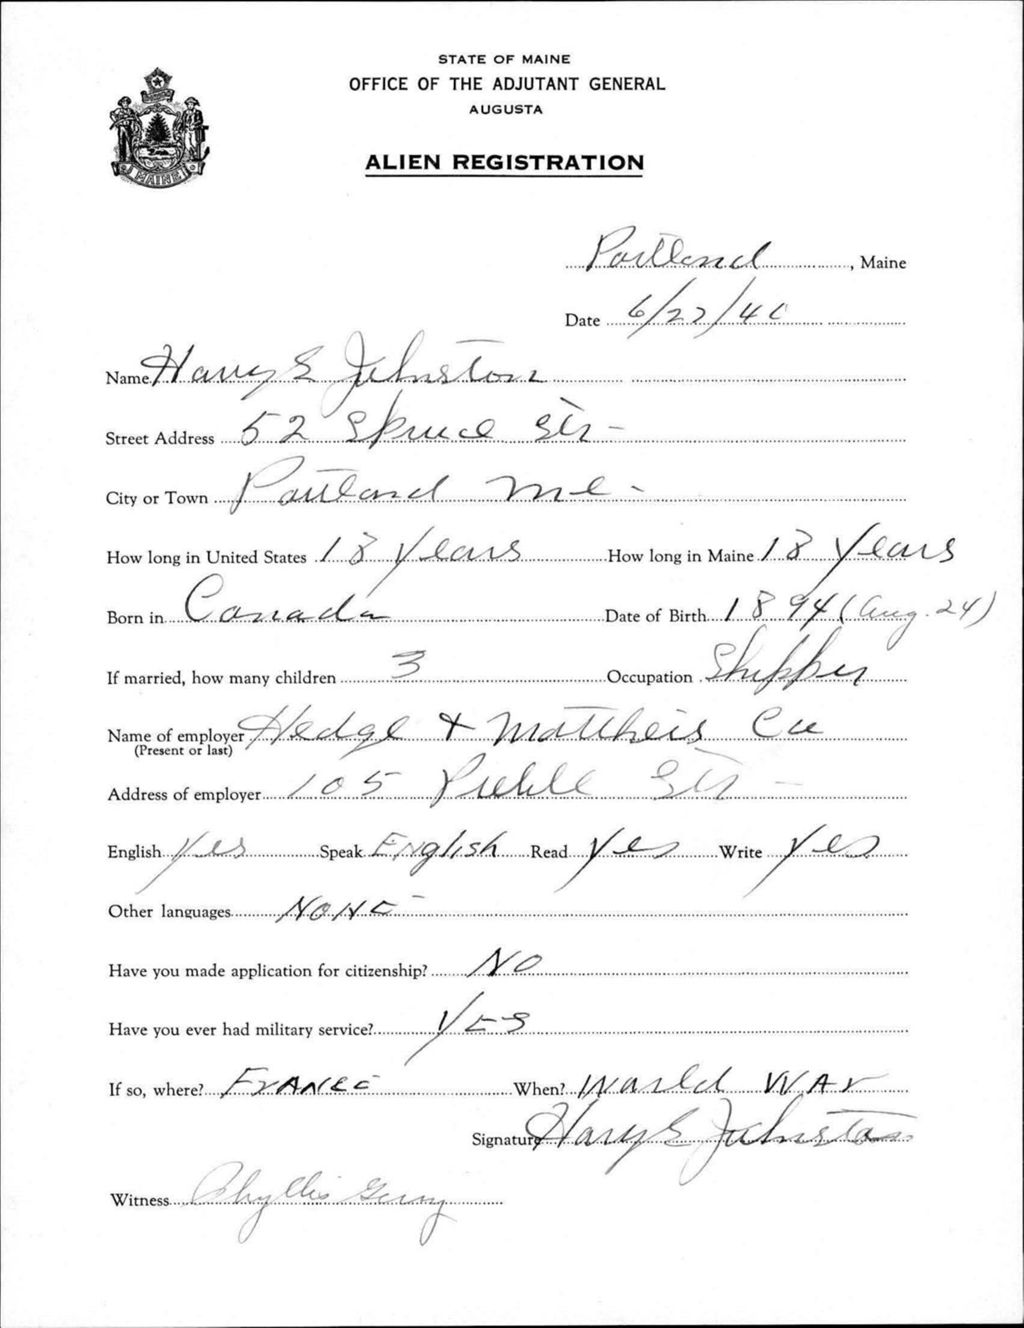 STATE OF MAINE
OFFICE OF THE ADJUTANT GENERAL
AUGUSTA
ALIEN REGISTRATION
MAINE
Portland, Maine
Date 6/22/40
Name Harry E Johnston
Street Address 52 Spruce Str-
City or Town Portland Me-
How long in United States 18 Years How long in Maine 18 Years
Born in Canada Date of Birth 1894 (Aug. 24)
If married, how many children 3 Occupation Shipper
Name of employer Hedge & Mattheis Co
(Present or last)
Address of employer 105 Preble Str -
English Yes Speak English Read Yes Write Yes
Other languages NONE
Have you made application for citizenship? NO
Have you ever had military service? YES
If so, where? FRANCE When? World War
Signature Harry E Johnston
Witness Phyllis